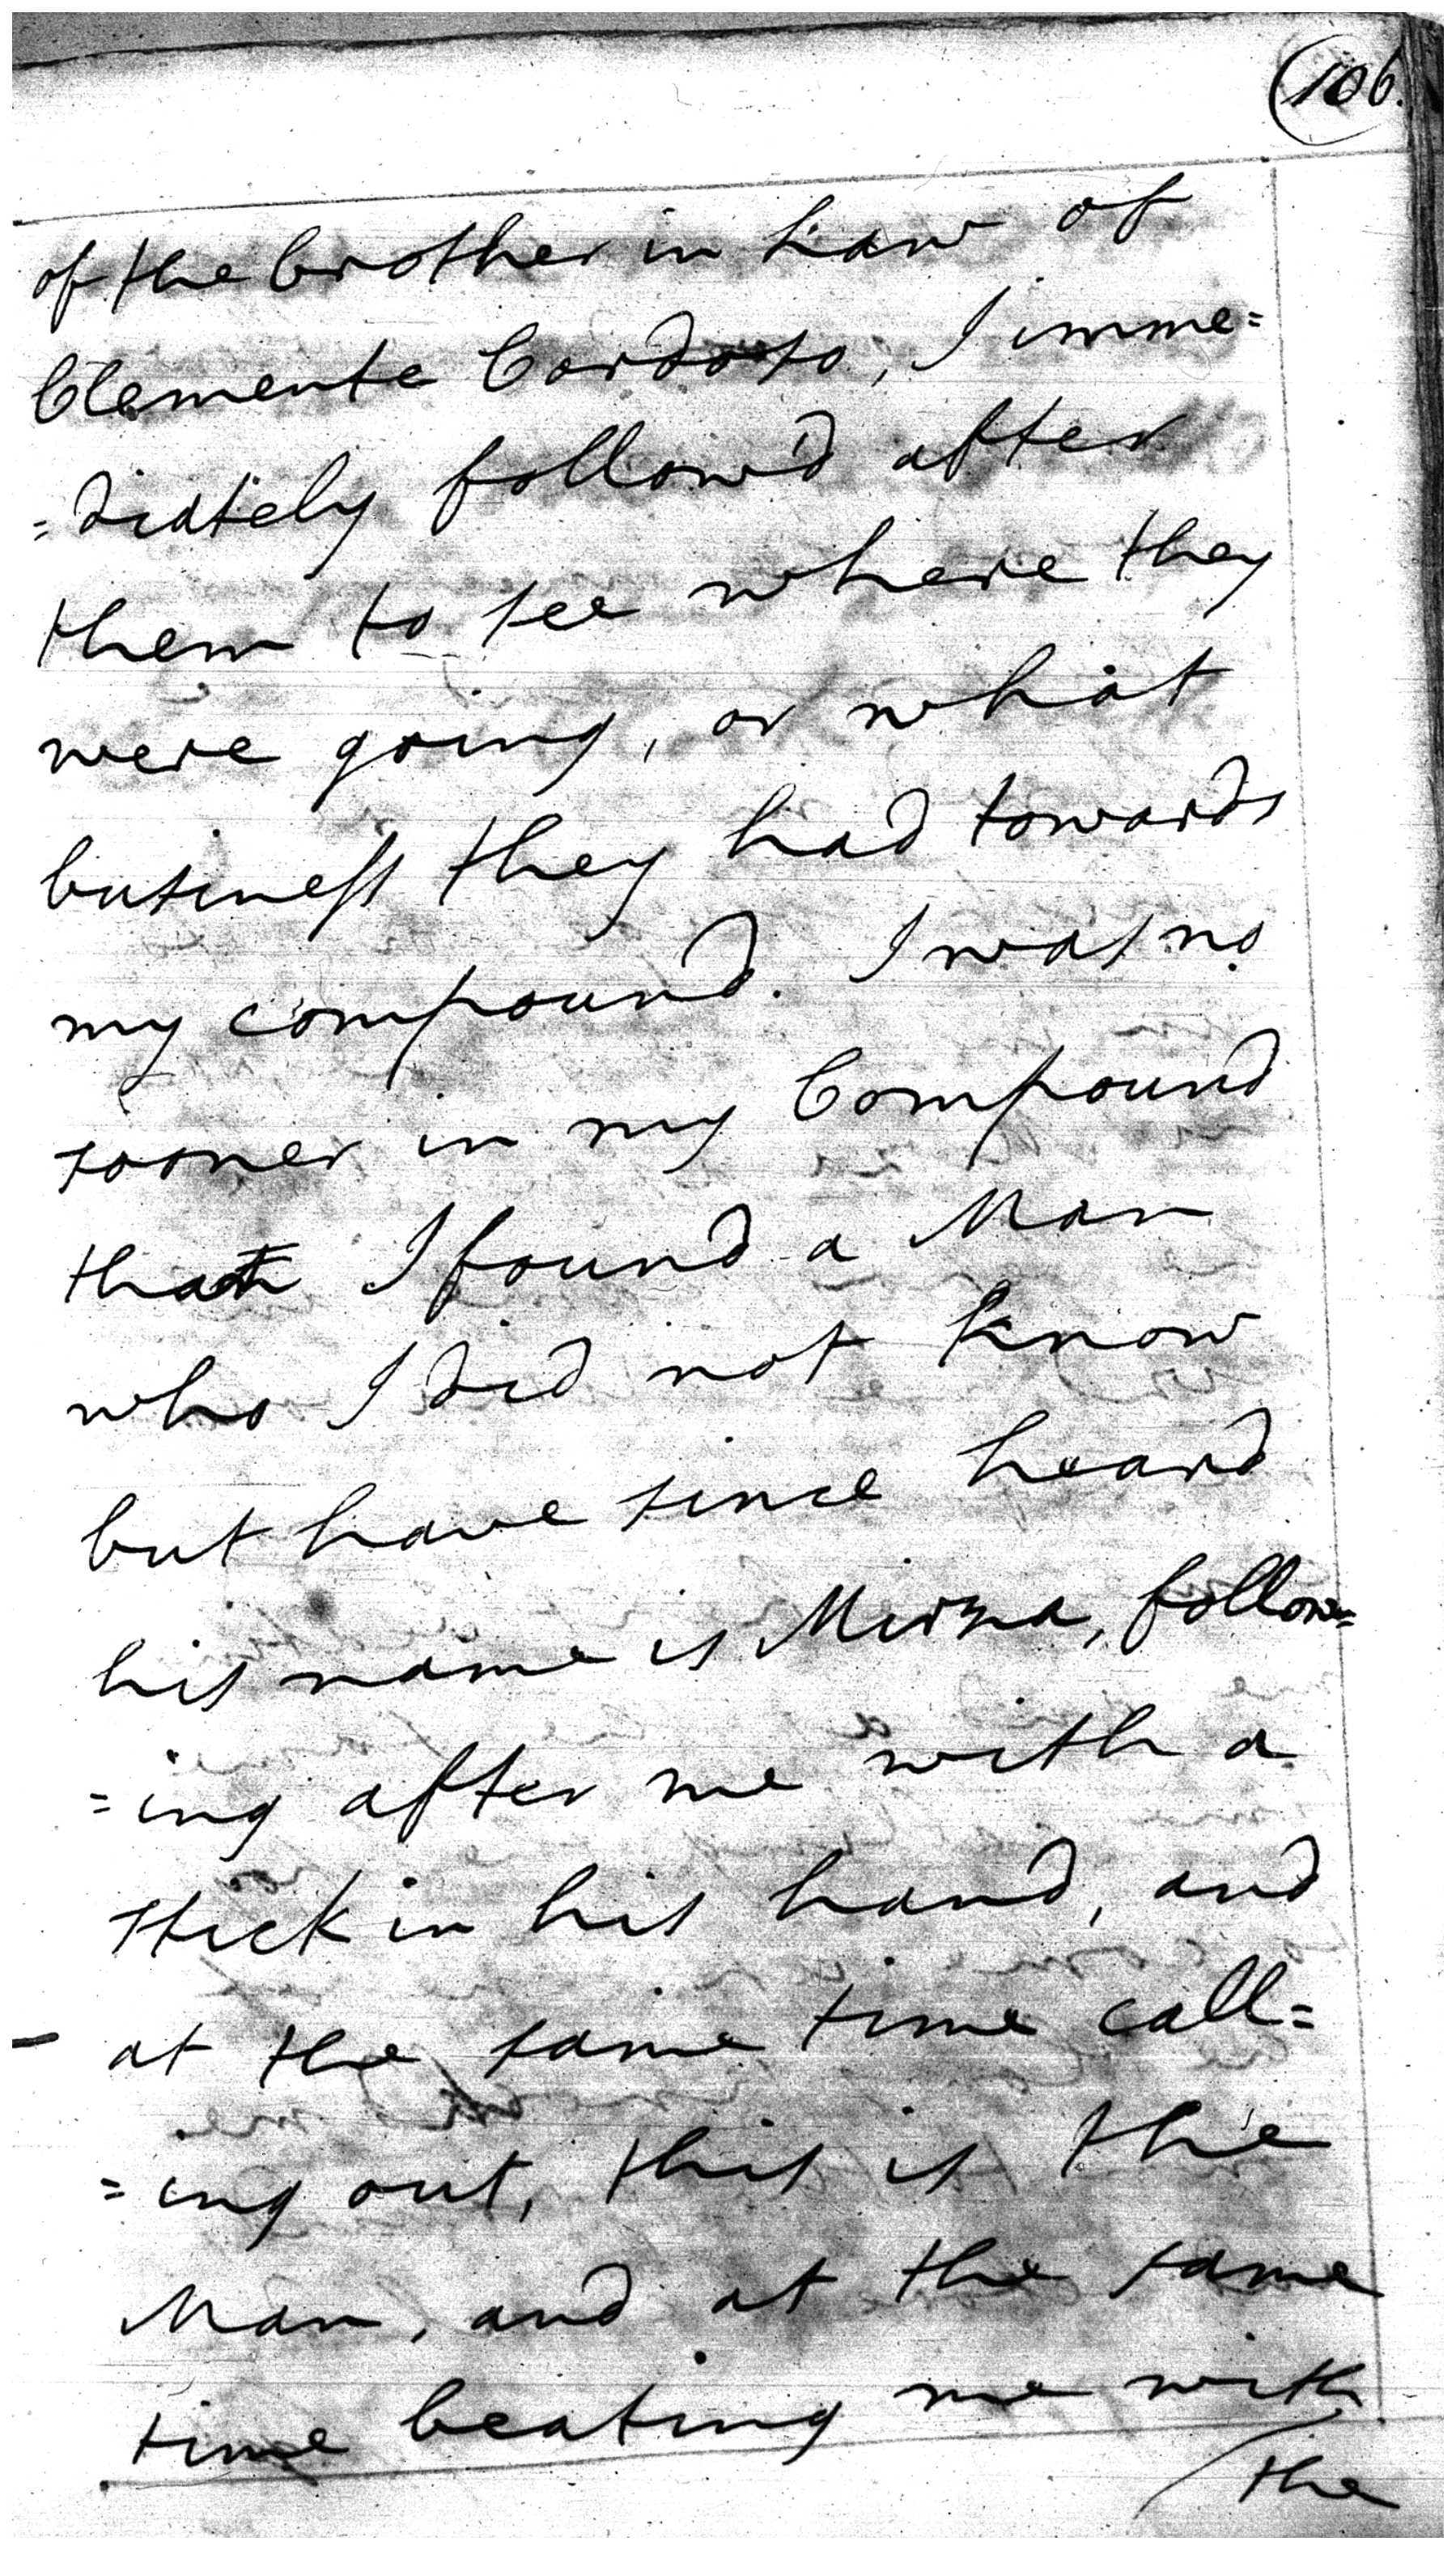 106.
of the brother in Law of
Clemente Cardoso, I imme=
=diately follow'd after
them to see where they
were going, or what
business they had towards
my compound. I was no
sooner in my Compound
than I found a Man
who I did not know
but have since heard
his name is Mirza, follow=
=ing after me with a
Stick in his hand, and
at the same time call=
=ing out, this is the
Man, and at the same
time beating me with
the